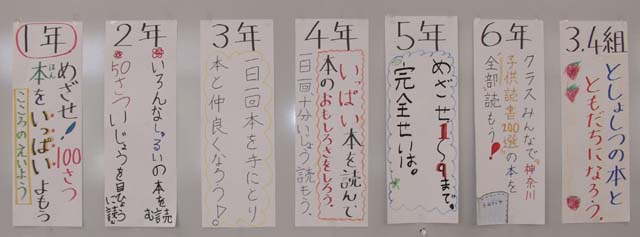 1年
めざせ!100さつ
本ほんをいっぱいよもう
こころのえいよう
2年
いろんなしゅるいの本を読む
50さついじょうを目ひょうに読む
3年
一日一回本を手にとり
本と仲良くなろう♪。
4年
いっぱい本を読んで
本のおもしろさをしろう。
一日一回十分いじょう読もう。
5年
めざせ1~9まで。
完全せいは。
6年
クラスみんなで"神奈川
子供読書200選の本を
全部読もう!
3.4組
としょしつの本と
ともだちになろう。